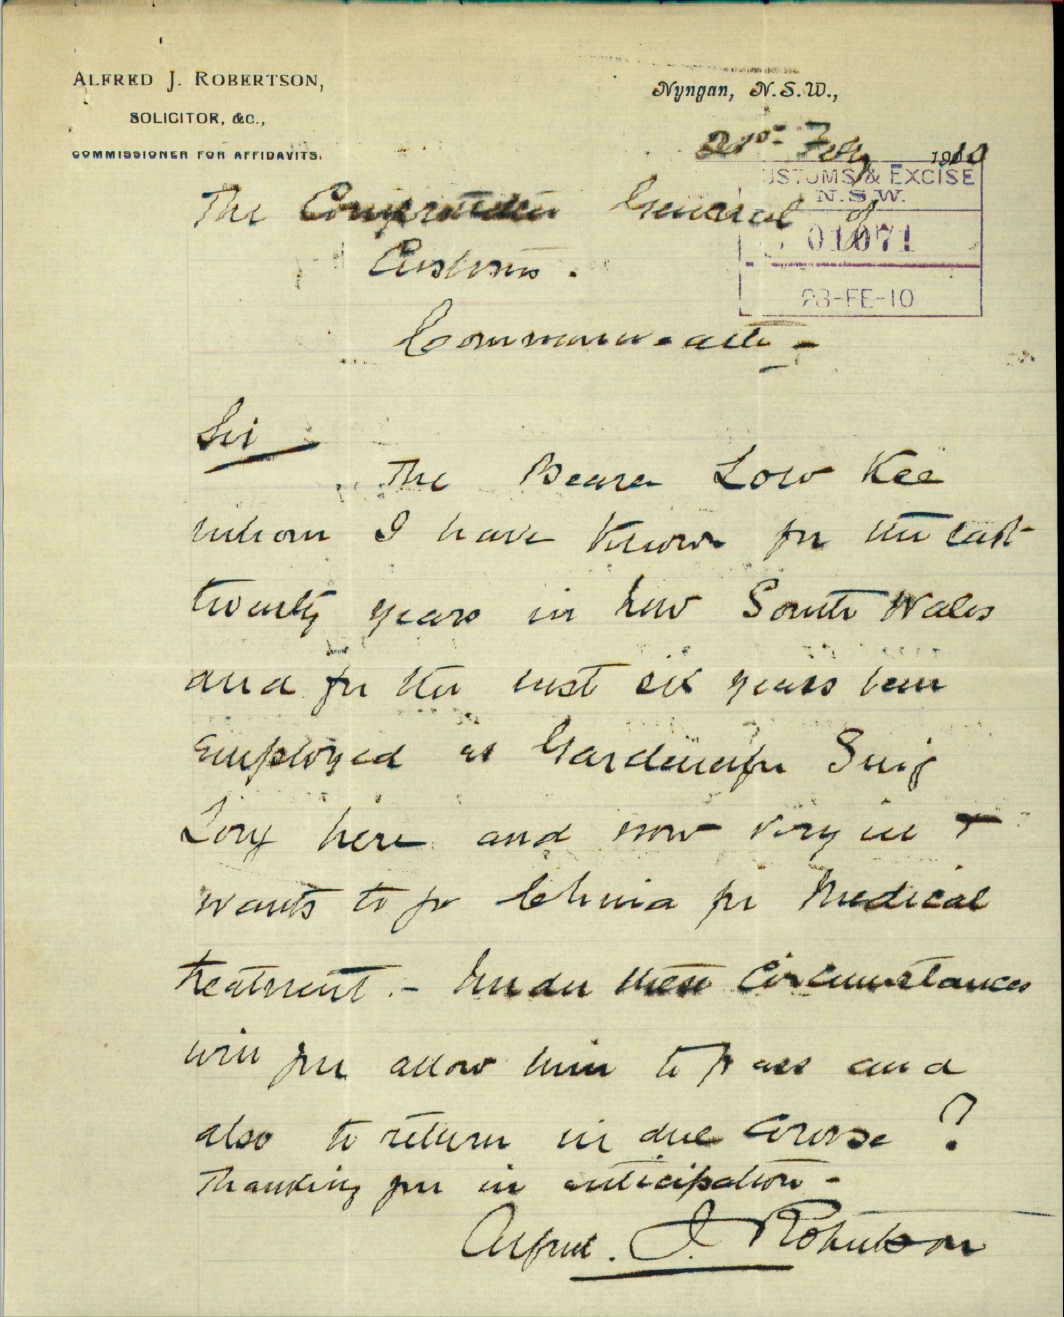 ALFRED J. ROBERTSON,
SOLICITOR, &C.,
COMMISSIONER FOR AFFIDAVITS.
Nyngan, N.S.W.,
21st Feby 1910
CUSTOMS & EXCISE
N.S.W.
01071
23-FE-10
The Comptroller General of
Customs.
Commonwealth -
Sir
The Bearer Low Kee
whom I have known for the last
twenty years in New South Wales
and for the last six years been
employed as Gardener for Sing
Long here and now very ill +
wants to go China for Medical
treatment. - Under these circumstances
will you allow him to pass and
also to return in due course ?
Thanking you in anticipation -
Alfred. J. Robertson